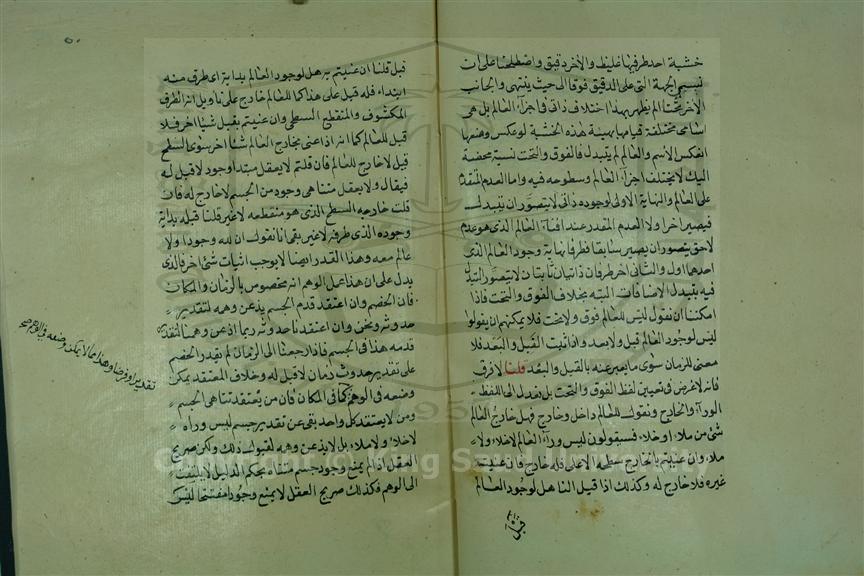 خشبة احد طرفيها غليظ والآخر دقيق واصطلحنا على ان
نسمى الجهة التى على الدقيق فوقا الى حيث ينتهى والجانب
الآخر تحتا لم يظهر بهذا اختلاف ذاتى فى اجزآء العالم بل هى
اسامى مختلفة قيامها بهيئة هذه الخشبة لو عكس وضعها
انعكس الاسم والعالم لم يتبدل فالفوق والتحت نسبة محضة
اليك لا يختلف اجزآء العالم وسطوحه فيه واما العدم المتقدم
على العالم والنهاية الاولى لوجوده ذاتى لا يتصور ان يتبدل
فيصير اخرا ولا العدم المقدر عند افنآء العالم الذى هو عدم
لاحق يتصور ان يصير سابقا فطرفا نهاية وجود العالم الذى
احدهما اول والثانى آخر طرفان ذاتيان ثابتان لا يتصور التبدل
فيه بتبدل الاضافات البته بخلاف الفوق والتحت فاذا
امكننا ان نقول ليس للعالم فوق ولا تحت فلا يمكنهم ان يقولوا
ليس لوجود العالم قبل ولا بعد واذا ثبت القبل والبعد فلا
معنى للزمان سوى ما يعبر عنه بالقبل والبعد قلنا لا فرق
فانه لا غرض فى تعيين لفظ الفوق والتحت بل نعدل الى لفظ
الورآء والخارج ونقول للعالم داخل وخارج فهل خارج العالم
شئ من ملاء او خلاء فسيقولون ليس ورآء العالم لا خلاء ولا
ملاء وان عنيتم بالخارج سطحه الاعلى فله خارج وان عنيتم
غيره فلا خارج له وكذلك اذا قيل لنا هل لوجود العالم
قبل
قبل قلنا ان عنيتم به هل لوجود العالم بداية اى طرف منه
ابتداء فله قبل على هذا كما للعالم خارج على تأويل انه الطرف
المكشوف والمنقطع السطحى وان عنيتم بقبل شيئا اخر فلا
قبل للعالم كما انه اذا عنى بخارج العالم شئ اخر سوى السطح
قيل لا خارج للعالم فان قلتم لا يعقل مبتدا وجود لا قبل له
فيقال ولا يعقل متناهى وجود من الجسم لا خارج له فان
قلت خارجه السطح الذى هو منقطعه لا غير قلنا قبله بداية
وجوده الذى طرفه لا غير بقى انا نقول ان لله وجودا ولا
عالم معه وهذا القدر ايضا لا يوجب اثبات شئ اخر فالذى
يدل على ان هذا عمل الوهم انه مخصوص بالزمان والمكان
فان الخصم وان اعتقد قدم الجسم يذعن وهمه لتقدير
حدوثه ونحن وان اعتقدنا حدوثه ربما اذعن وهمنا لتقدير
قدمه هذا فى الجسم فاذا رجعنا الى الزمان لم يقدر الخصم
على تقدير حدوث زمان لا قبل له وخلاف المعتقد يمكن
وضعه فى الوهم كما فى المكان فان من يعتقد تناهى الجسم
ومن لا يعتقد كل واحد بقى عن تقدير جسم ليس ورآه
لا خلاء ولا ملاء بل لا يذعن وهمه لقبول ذلك ولكن صريح
العقل اذا لم يمنع وجود جسم متناه بحكم الدليل لا يلتفت
الى الوهم فكذلك صريح العقل لا يمنع وجودا مفتتحا ليس
تقديرا وفرضا وهذا مما لا يمكن وضعه فى الوهم صح
Copyright © King Saud University
1957